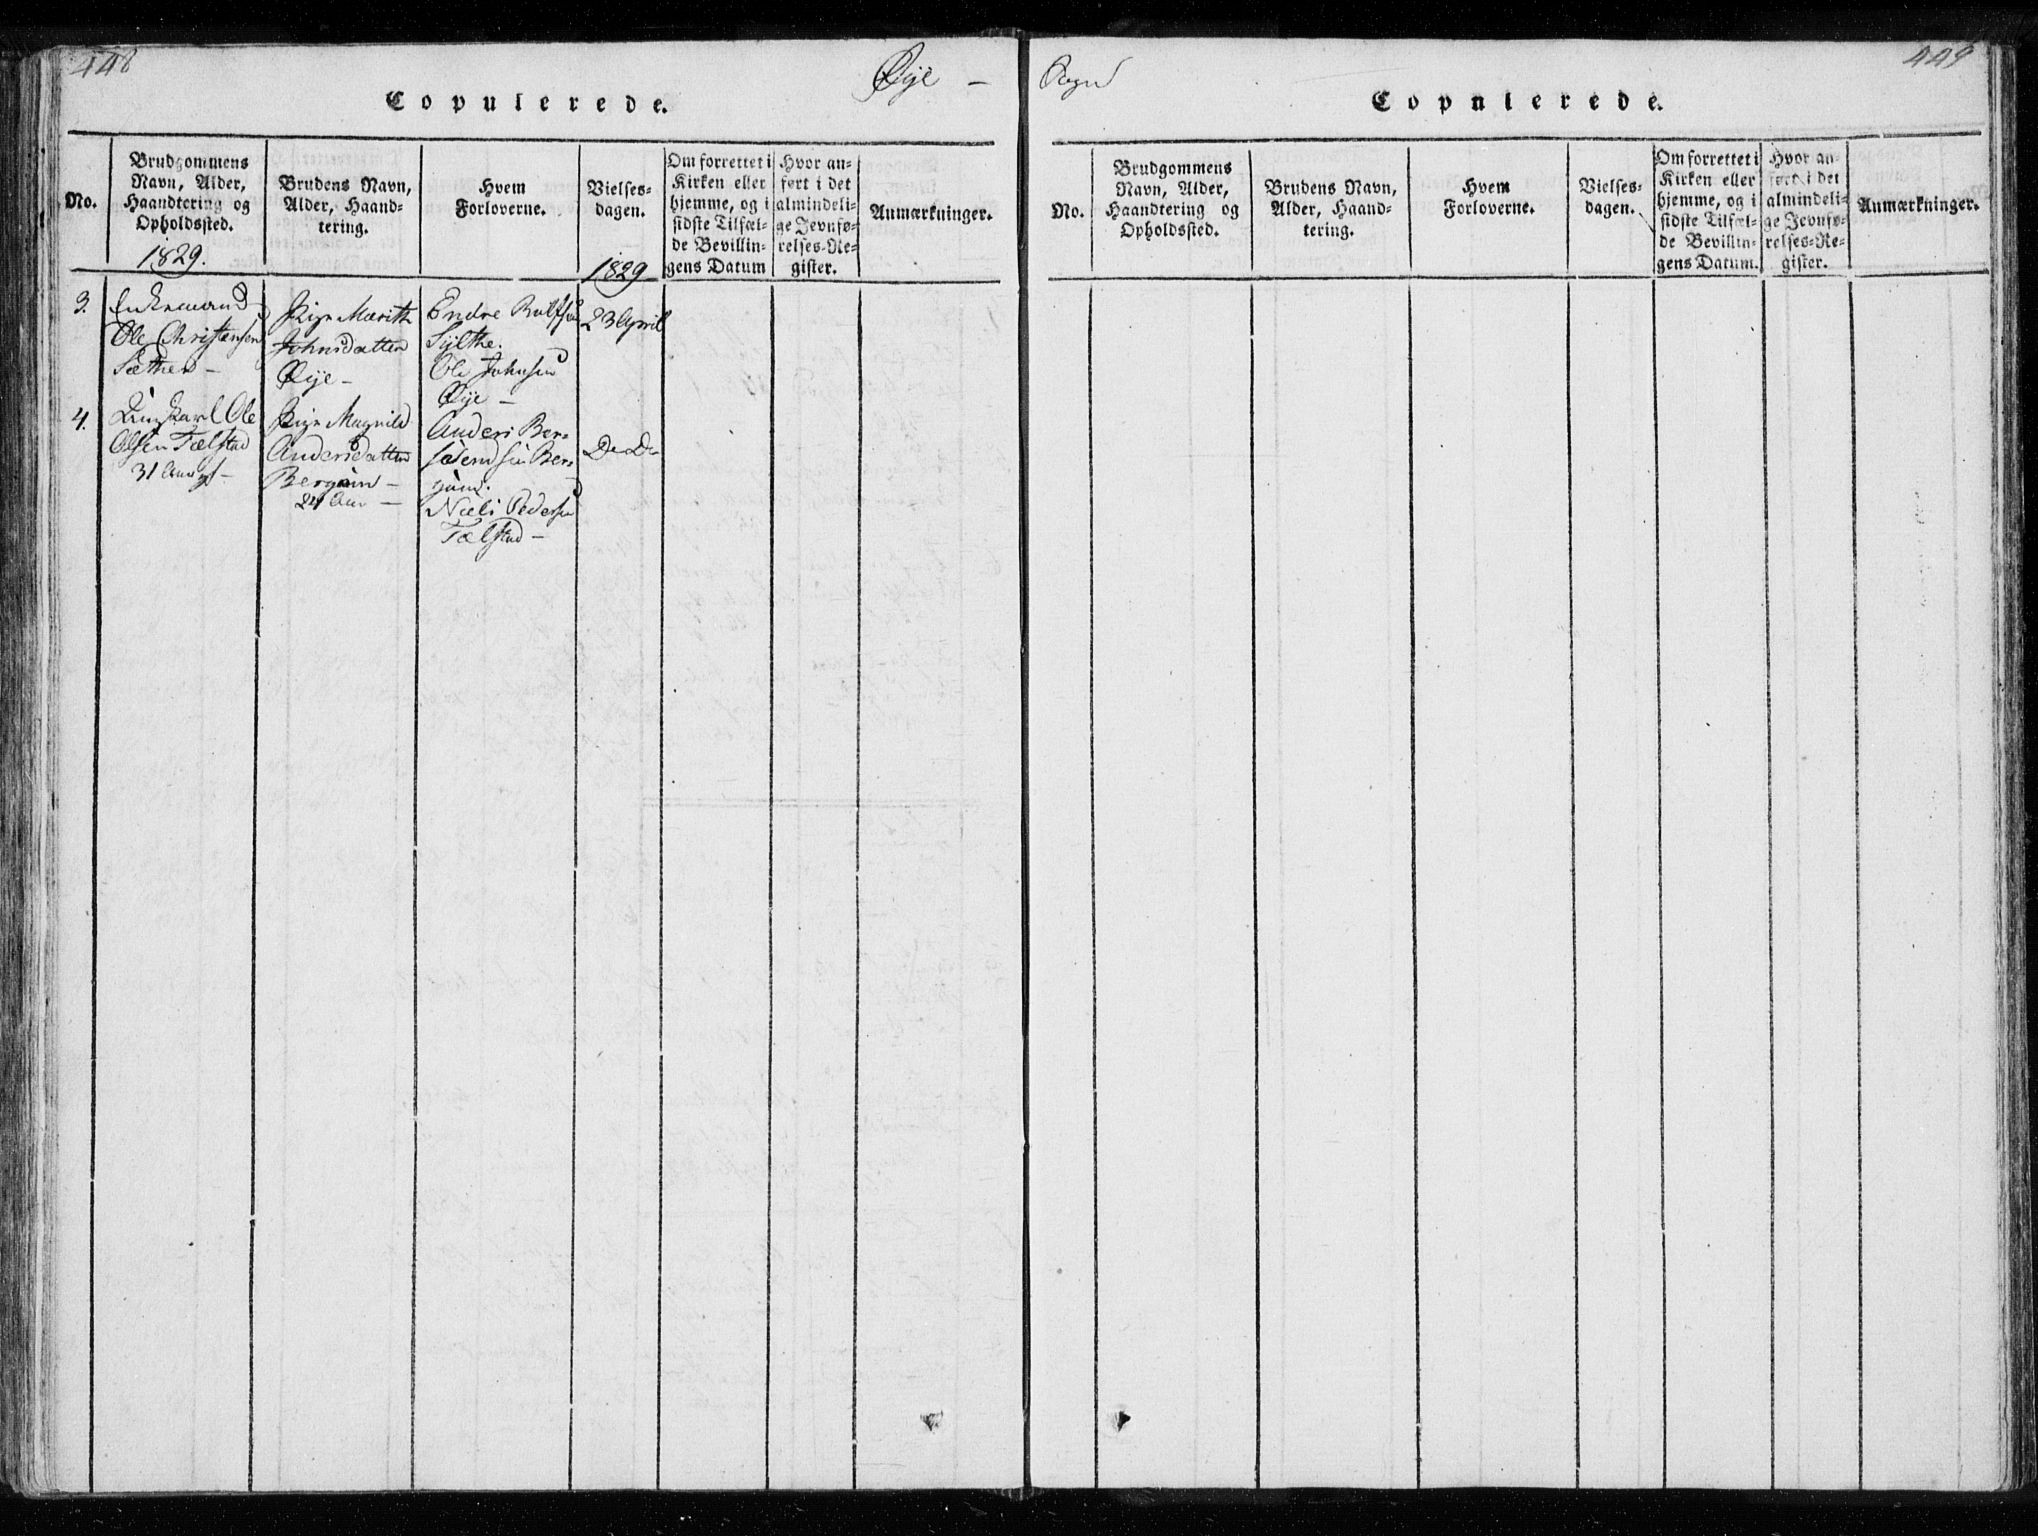 448
Øije –
Copulerede.
No.
Brudgommens
Navn, Alder,
Haandtering og
Opholdssted.
1829.
Brudens Navn,
Alder, Haand-
tering.
Hvem
Forloverne.
Vielses-
dagen.
1829
Om forrettet i
Kirken eller
hjemme, og i
sidste Tilfæl-
de Bevillin-
gens Datum
Hvor an-
ført i det
almindeli-
ge Jevnfø-
relses-Re-
gister.
Anmærkninger.
3.
Enkemand
Ole Christensen
Sæther –
Pige Marith
Johnsdatter
Øije –
Endre
Sylthe.
Ole Johnsen
Øije –
23 April
4.
Ungkarl Ole
Olsen Tælstad
31 Aar
Pige Magnild
Andersdatter
Bergum –
24 Aar –
Anders Ber=
Ber=
gum.
Niels Pedersen
Tælstad –
Do Do
Sogn
449
Copulerede.
No.
Brudgommens
Navn, Alder,
Haandtering og
Opholdssted.
Brudens Navn,
Alder, Haand-
tering.
Hvem
Forloverne.
Vielses-
dagen.
Om forrettet i
Kirken eller
hjemme, og i
sidste Tilfæl-
de Bevillin-
gens Datum.
Hvor an-
ført i det
almindeli-
ge Jevnfø-
relses-Re-
gister.
Anmærkninger.